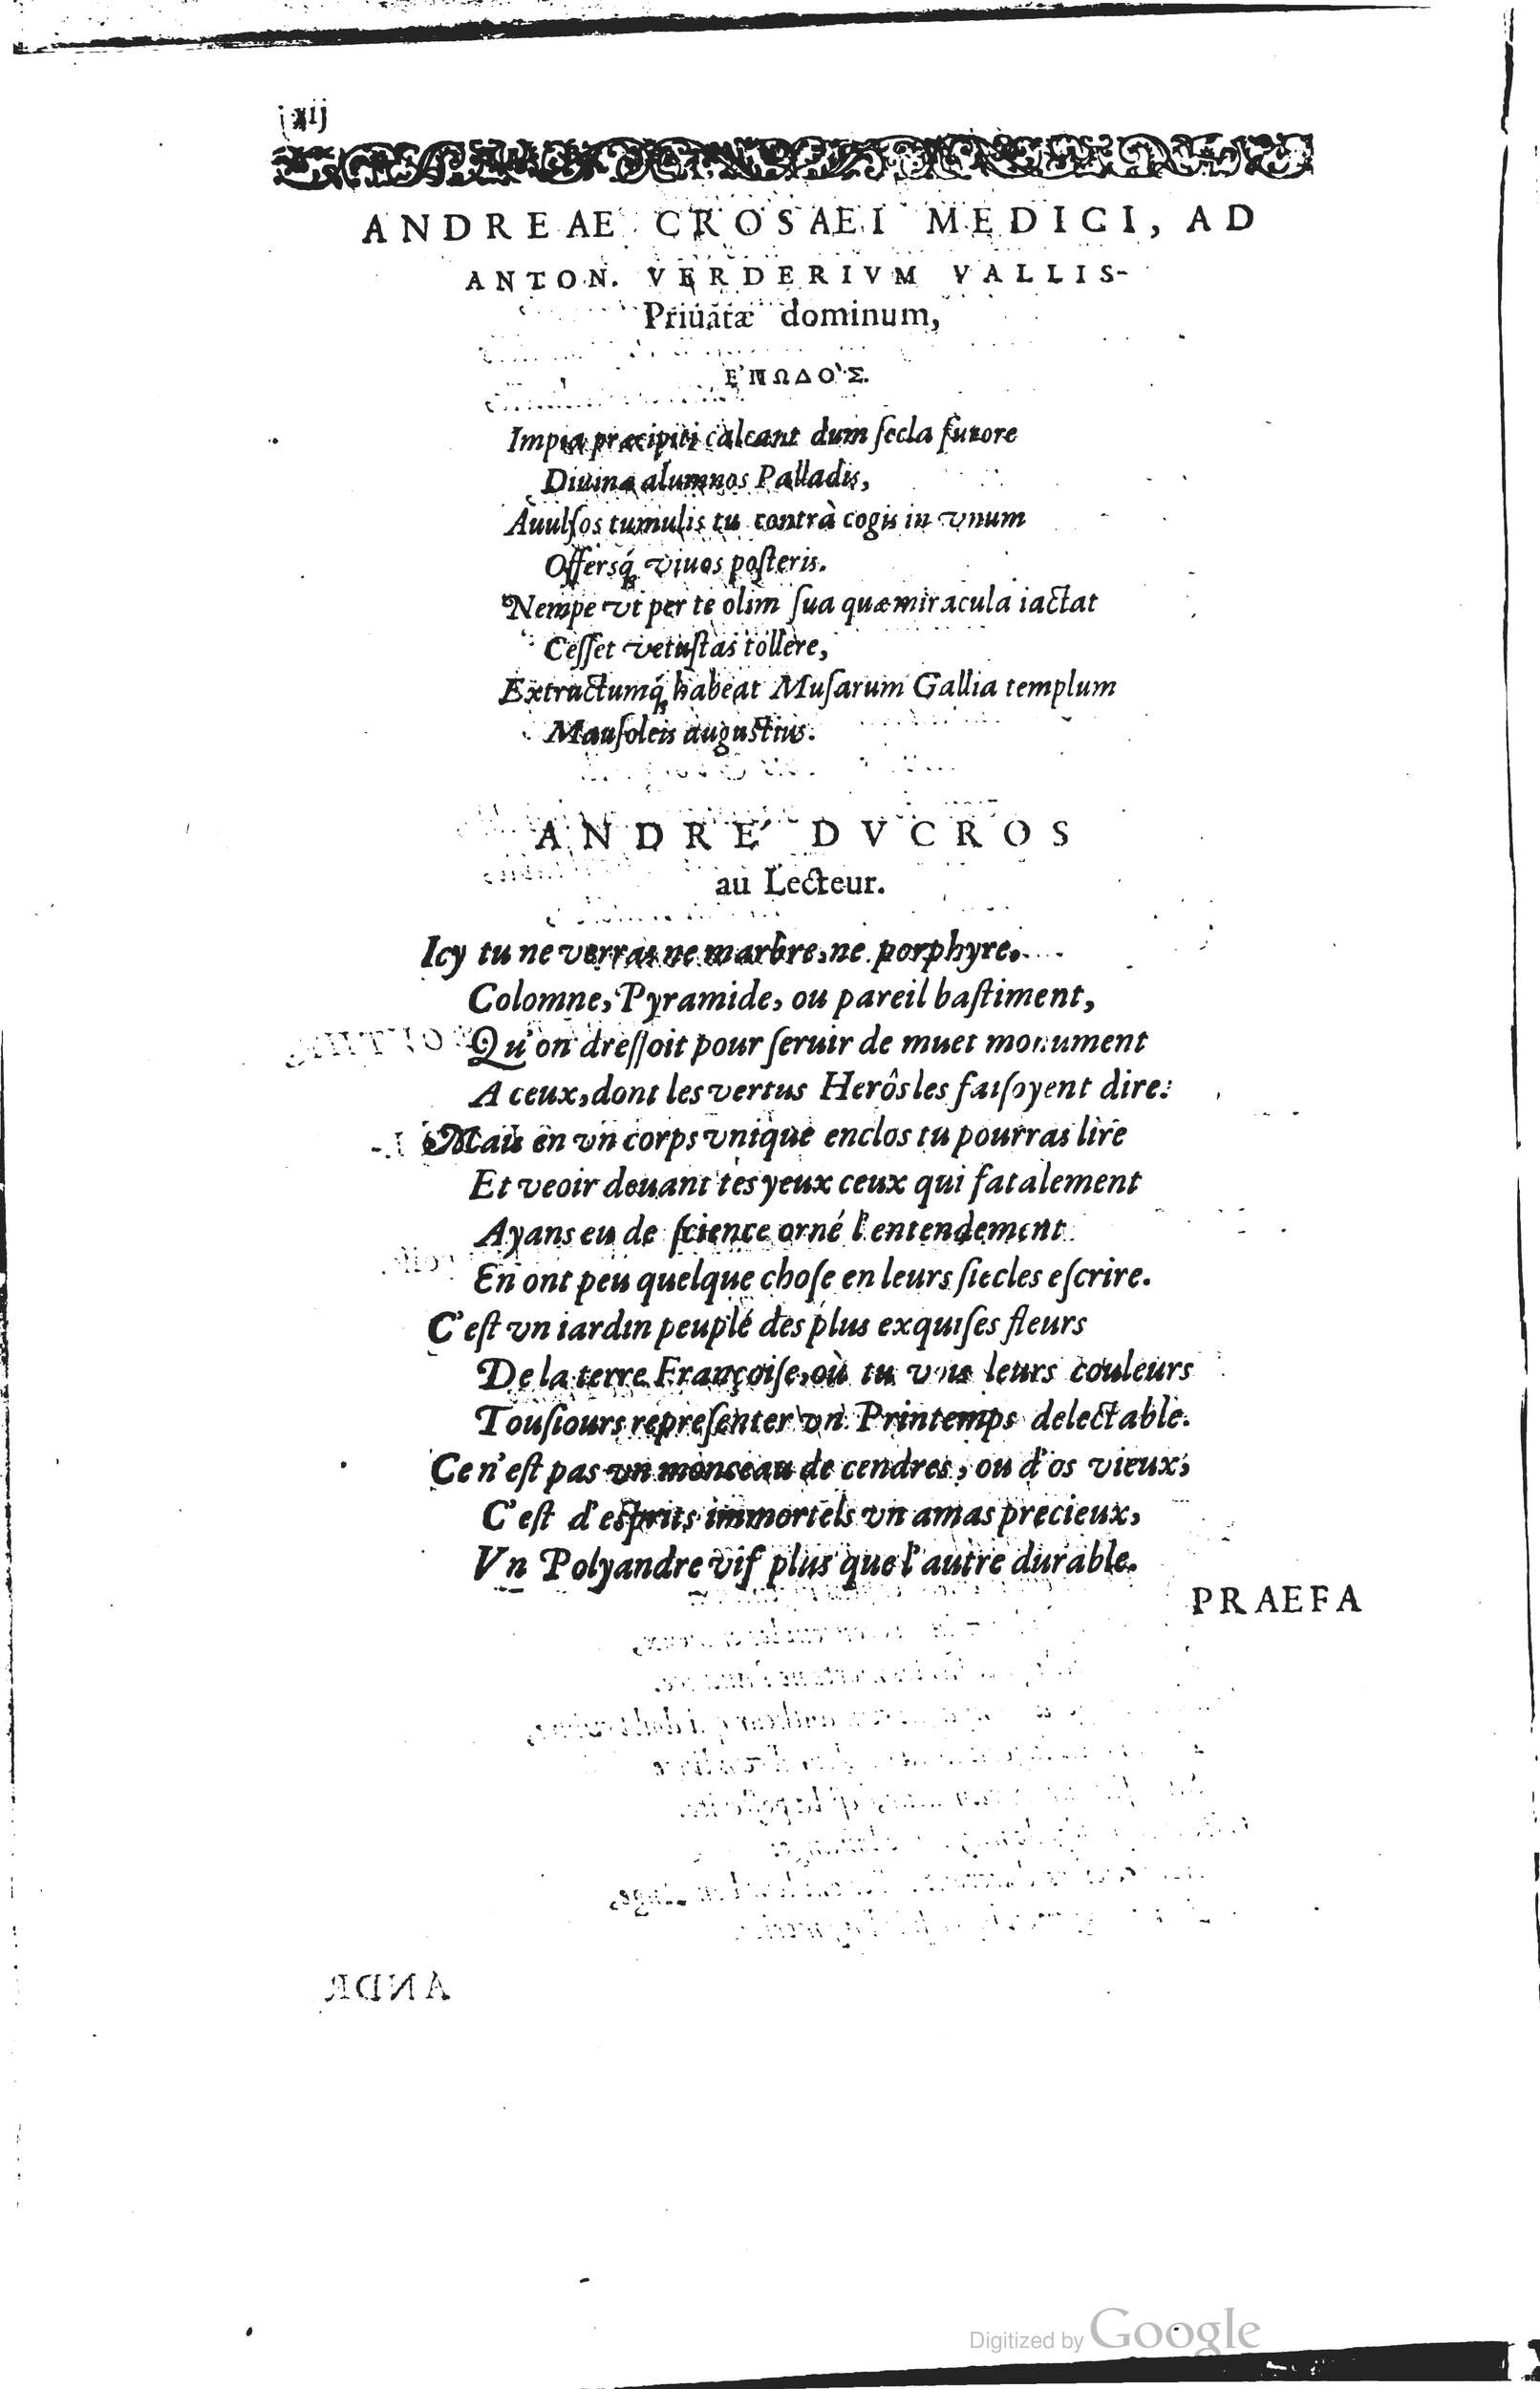 ANDREAE CROSAEI MEDICI, AD
ANTON. VERDERIVM VALLIS-
Priuatæ dominum,
ΕʼΠΩΔΟʽΣ.
Impia præcipiti calcant dum ſecla furore
Diuinæ alumnos Palladis,
Auulſos tumulis tu contrà cogis in vnum
Offersq́; viuos poſteris.
Nempe vt per te olim ſua quæ miracula iactat
Ceſſet vetuſtas tollere,
Extructumq́; habeat Muſarum Gallia templum
Mauſoleis auguſtius.
ANDRE´ DVCROS
au Lecteur.
Icy tu ne verras ne marbre, ne porphyre,
Colomne, Pyramide, ou pareil baſtiment,
Qu'on dreſſoit pour ſeruir de muet monument
A ceux, dont les vertus Herôs les faiſoyent dire:
Mais en vn corps vnique enclos tu pourras lire
Et veoir deuant tes yeux ceux qui fatalement
Ayans eu de ſcience orné l'entendement
En ont peu quelque choſe en leurs ſiecles eſcrire.
C'eſt vn iardin peuplé des plus exquiſes fleurs
De la terre Françoiſe, où tu vois leurs couleurs
Touſiours repreſenter vn Printemps delectable.
Ce n'eſt pas vn monceau de cendres, ou d'os vieux,
C'eſt d'eſprits immortels vn amas precieux,
Vn Polyandre vif plus que l'autre durable.
PRAEFA
Digitized by Google